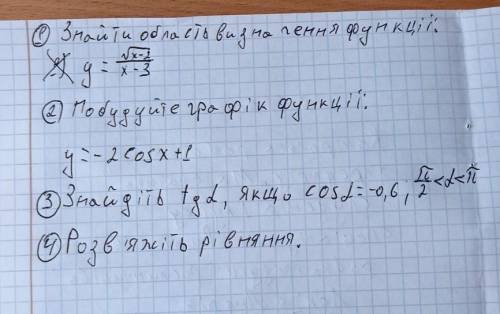 ① Знайти область визначення функції:
y = √(x-2) / (x-3)
② Побудуйте графік функції:
y = -2cosx+1
③ Знайдіть tgα, якщо cosα = -0,6, π/2 < α < π
④ Розв'яжіть рівняння.